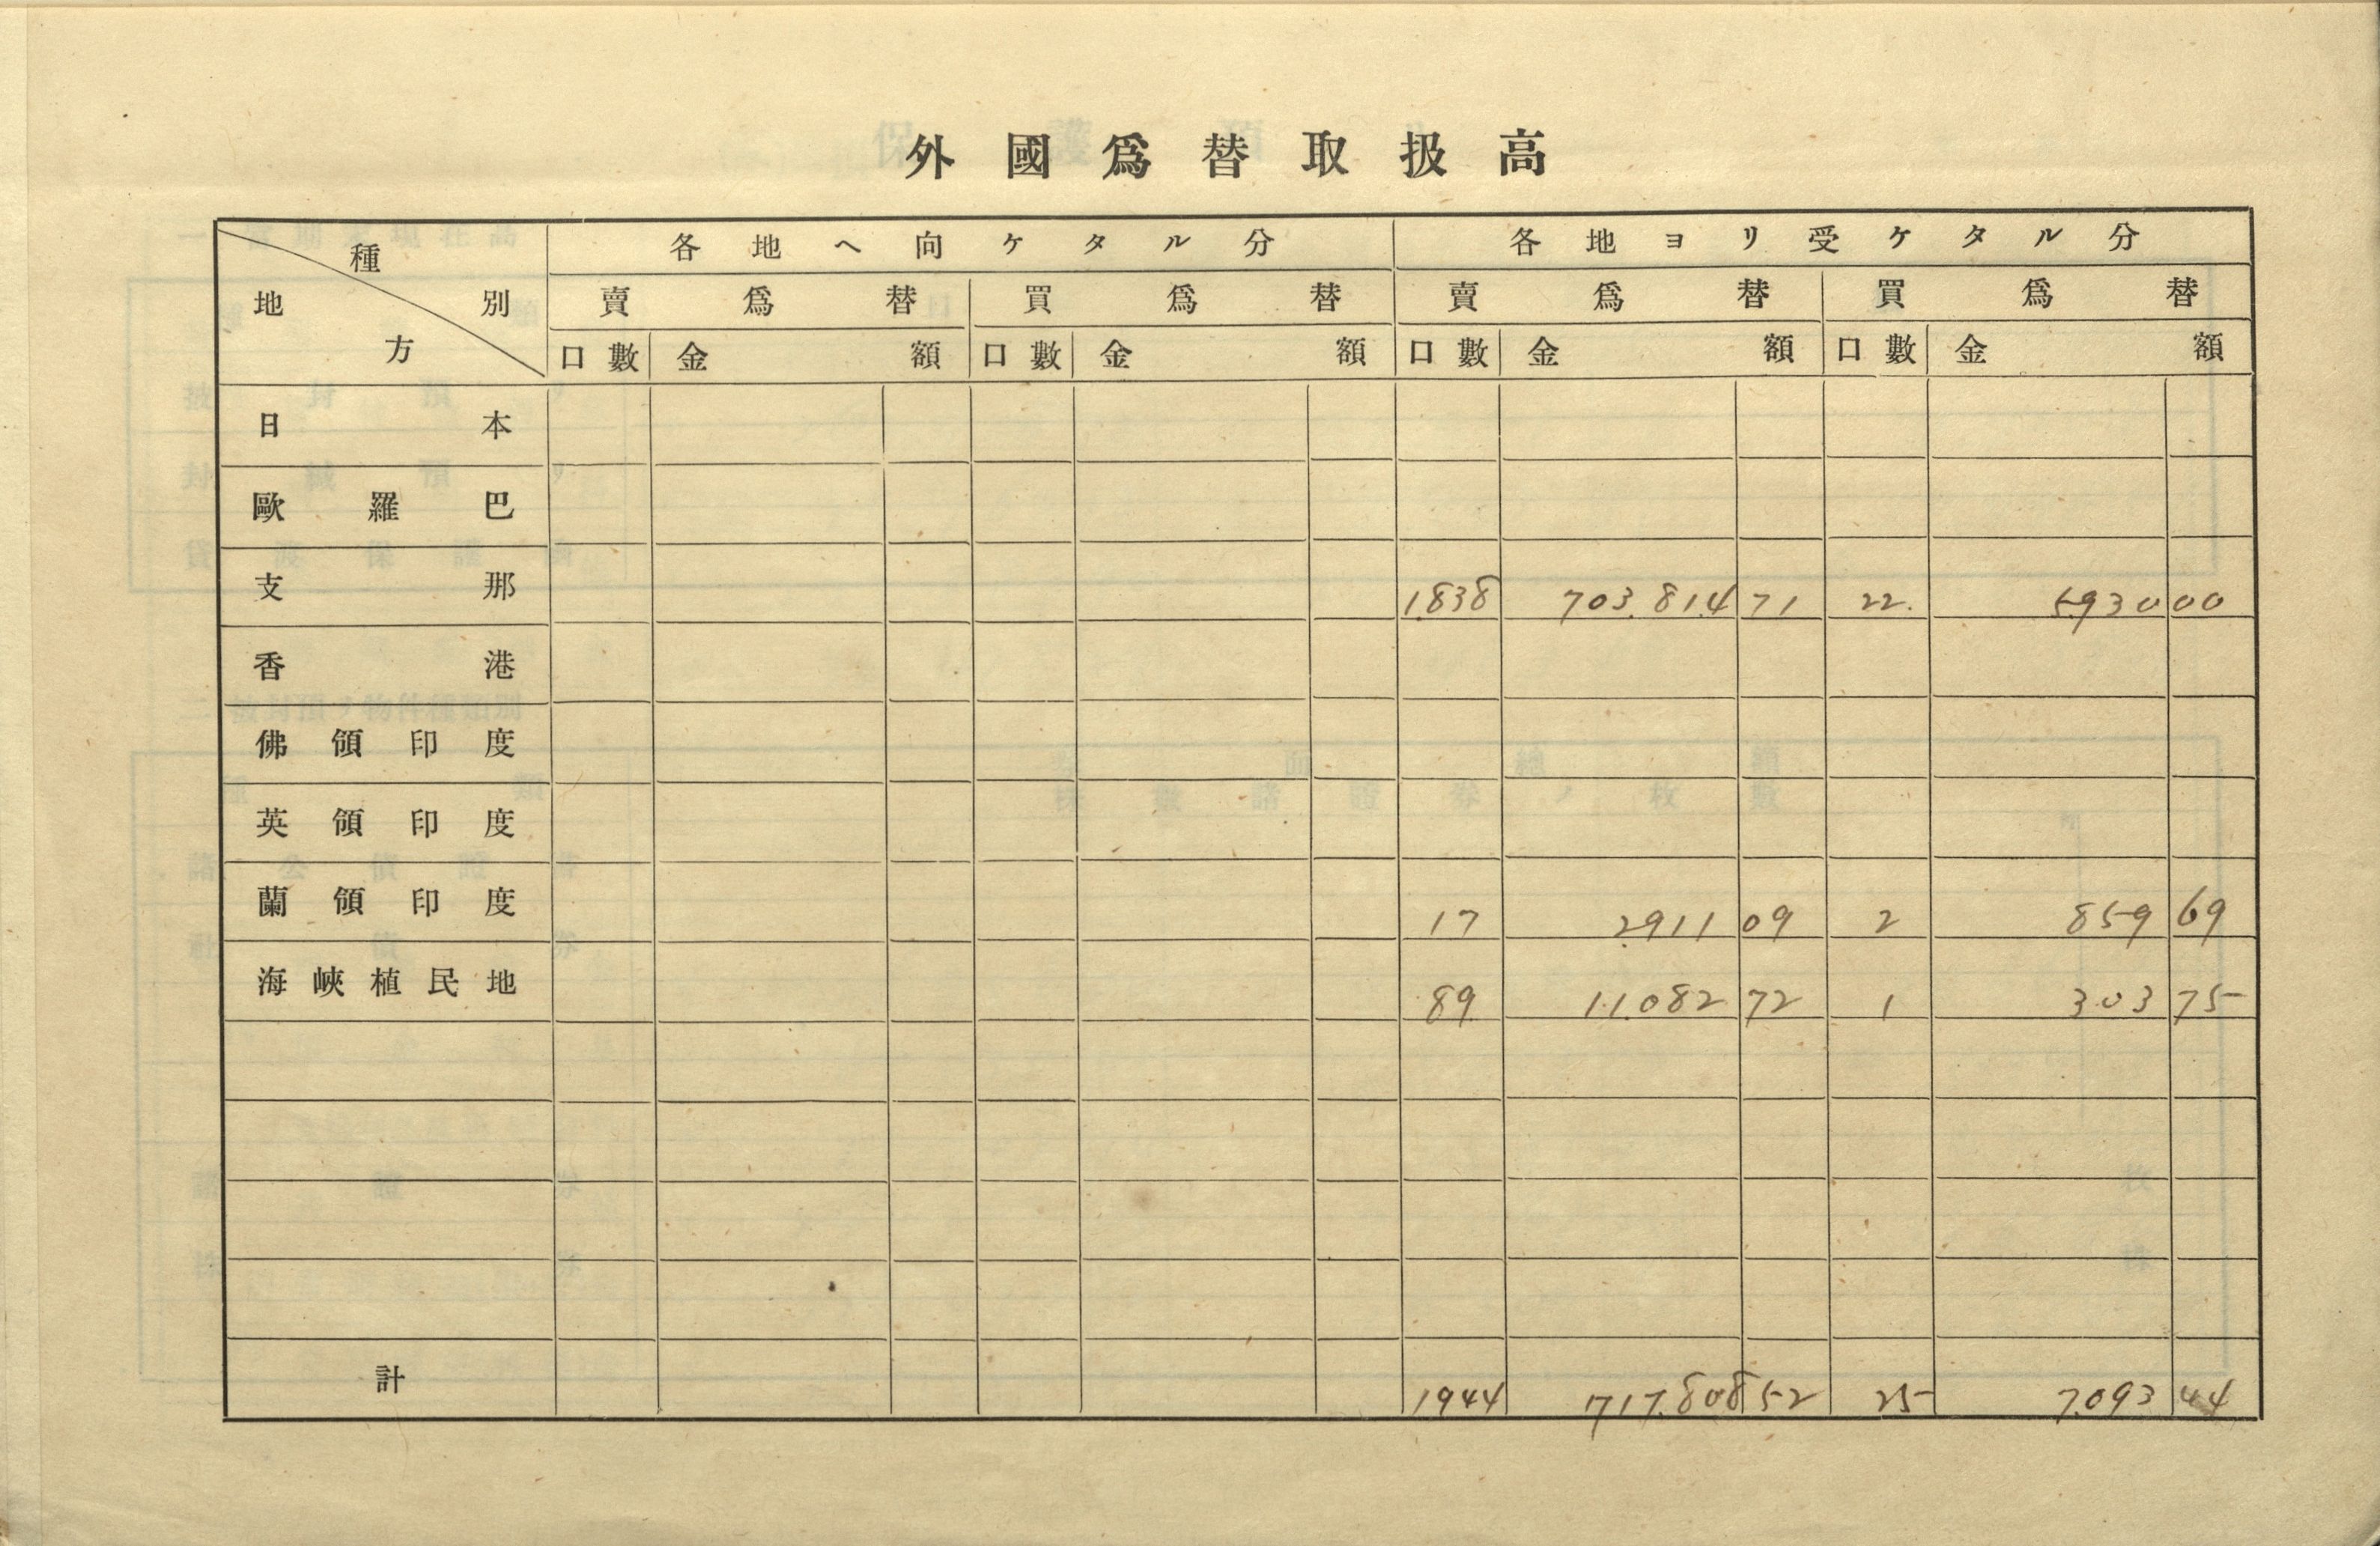 外國爲替取扱高
種別 地方 各地ヘ向ケタル分 各地ヨリ受ケタル分
賣爲替 買爲替 賣爲替 買爲替
口數 金額 口數 金額 口數 金額 口數 金額
日本
歐羅巴
支那 1,838 703,814 71 22 5,930 00
香港
佛領印度
英領印度
蘭領印度 17 2,911 09 2 859 69
海峽植民地 89 11,082 72 1 303 75
計 1944 717,808 52 25 7,093 44